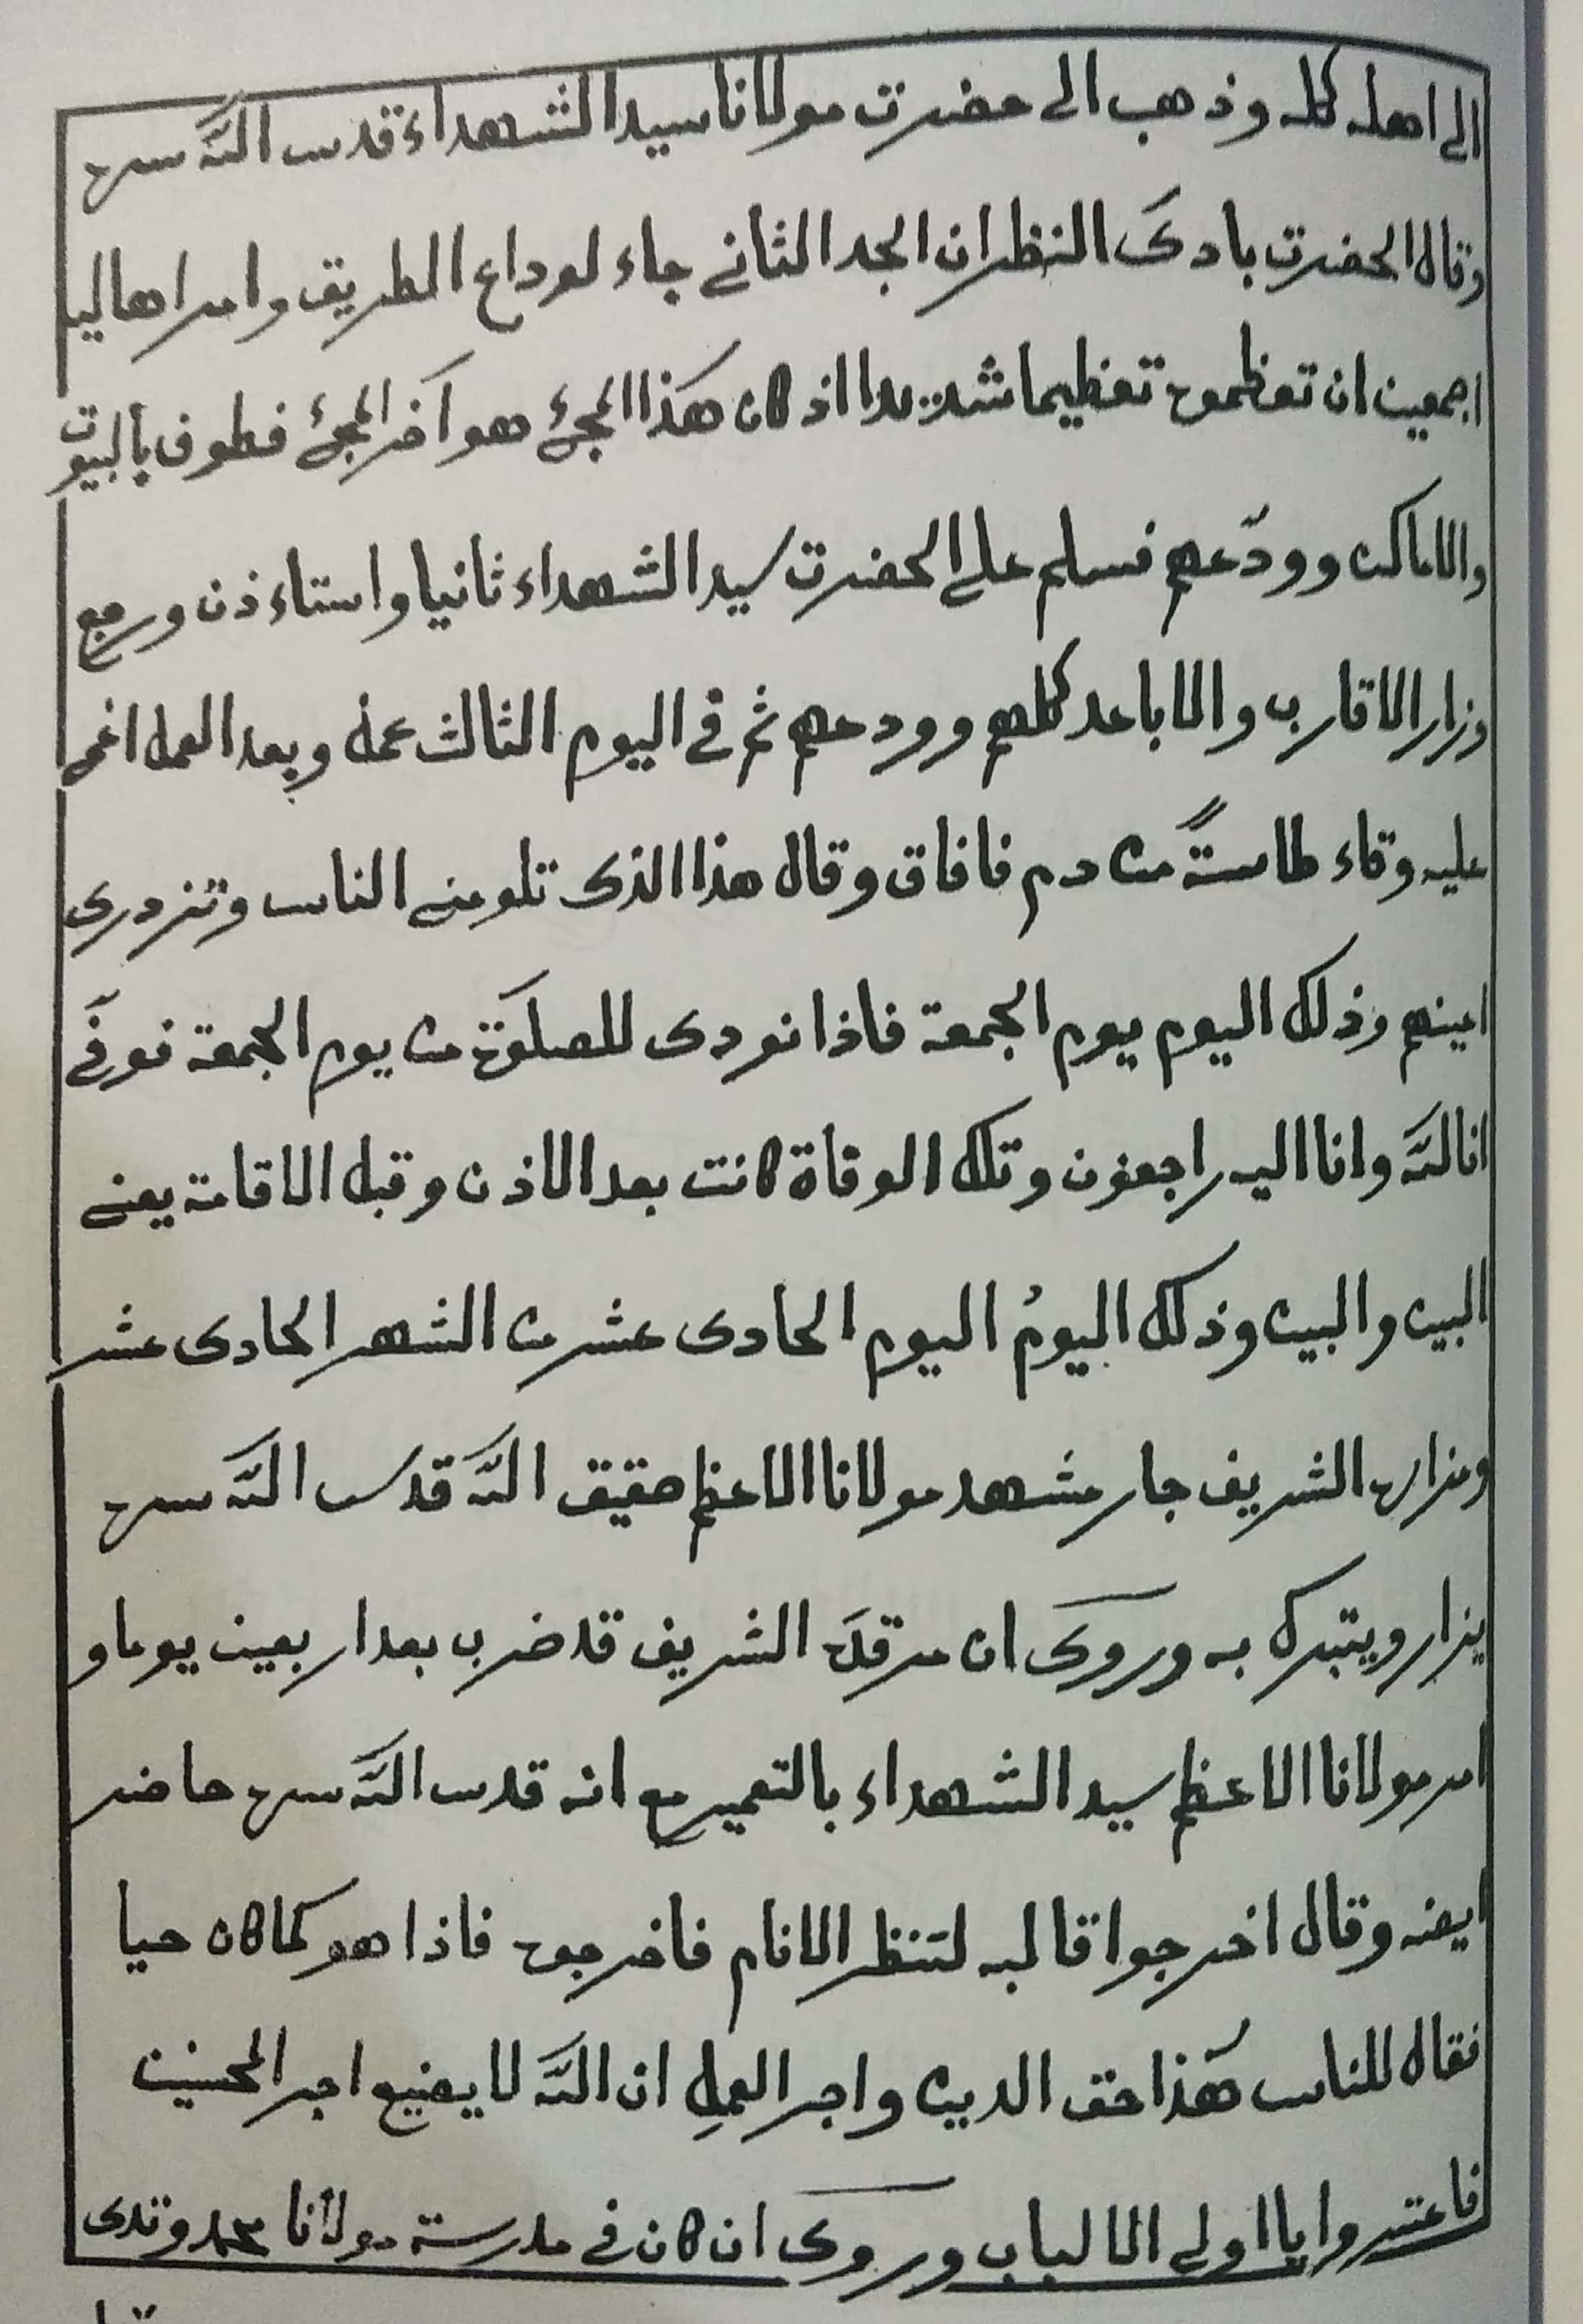 الى اهله كله وذهب الى حضرت مولانا سيد الشهداء قدس الله سره
وقال الحضرت بادى النظر ان الجد الثانى جاء لوداع الطريق وامر اهاليه
اجمعين ان تعظموه تعظيما شديدا اذ كان هكذا المجئ هو آخر المجئ فطوف بالبيوت
والاماكن وودّعهم فسلم على الحضرت سيد الشهداء ثانيا واستاءذن ورجع
وزار الاقارب والاباعد كلهم وودعهم ثم فى اليوم الثالث عمل وبعد العمل اغمى
عليه وقاء طاسةً من دم فافاق وقال هذا الذى تلومنى الناس وتزدرى
اعينهم وذلك اليوم يوم الجمعة فاذا نودى للصلوة من يوم الجمعة فوفى
انا لله وانا اليه راجعون وتلك الوفاة كانت بعد الاذن وقبل الاقامة يعنى
البين والبين وذلك اليومُ اليوم الحادى عشر من الشهر الحادى عشر
ومزاره الشريف جار مشهد مولانا الاعظم حقيق الله قدس الله سره
يزار ويتبرك به وروى ان مرقده الشريف قد ضرب بعد اربعين يوما و
امر مولانا الاعظم سيد الشهداء بالتعمير مع انه قدس الله سره حاضر
ايضه وقال اخرجوا قالبه لتنظر الانام فاخرجوه فاذا هو كما كان حيا
فقال للناس هٰذا حق الدين واجر العملِ ان الله لا يضيع اجر المحسنين
فاعتبروا يا اولى الالباب وروى ان كان فى مدرسة مولانا محمد وندى